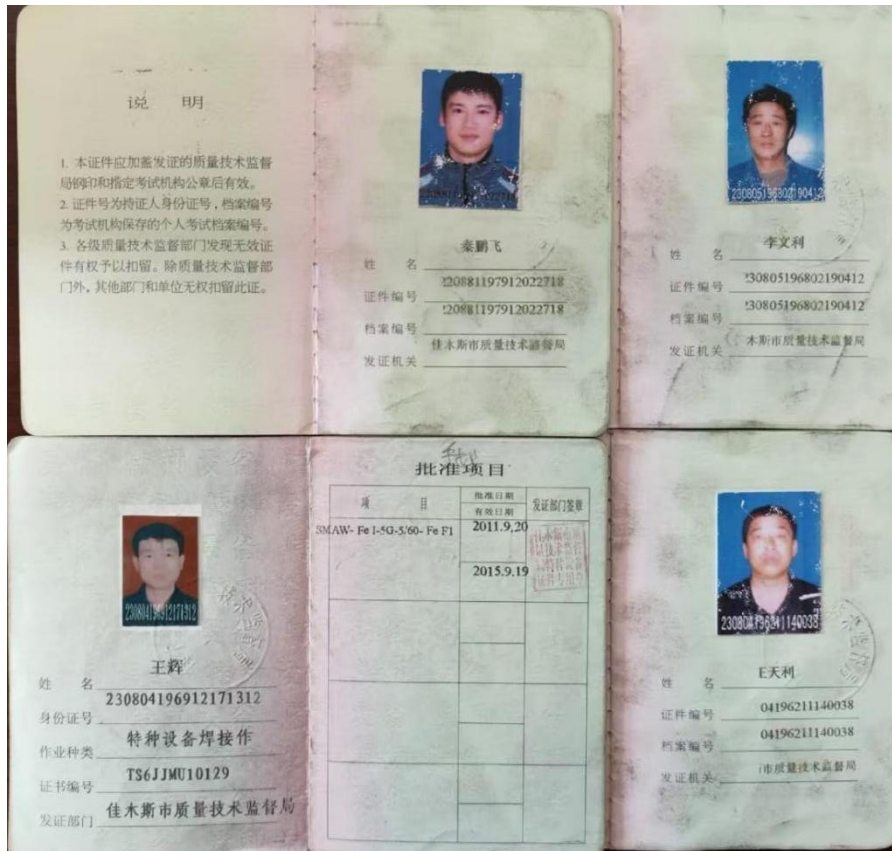 说 明
1. 本证件应加盖发证的质量技术监督
局钢印和指定考试机构公章后有效。
2. 证件号为持证人身份证号，档案编号
为考试机构保存的个人考试档案编号。
3. 各级质量技术监督部门发现无效证
件有权予以扣留。除质量技术监督部
门外，其他部门和单位无权扣留此证。
姓 名 秦鹏飞
证件编号 20881197912022718
档案编号 20881197912022718
发证机关 佳木斯市质量技术监督局
230805196802190412
姓 名 李文利
证件编号 30805196802190412
档案编号 30805196802190412
发证机关 木斯市质量技术监督局
230804196912171312
姓 名 王辉
身份证号 230804196912171312
作业种类 特种设备焊接作
证书编号 TS6JJMU10129
发证部门 佳木斯市质量技术监督局
批准项目
项 目
批准日期
有效日期
发证部门签章
SMAW- Fe I-5G-5/60- Fe F1
2011.9,20
2015.9.19
230804196211140038
姓 名 天利
证件编号 04196211140038
档案编号 04196211140038
发证机关 市质量技术监督局